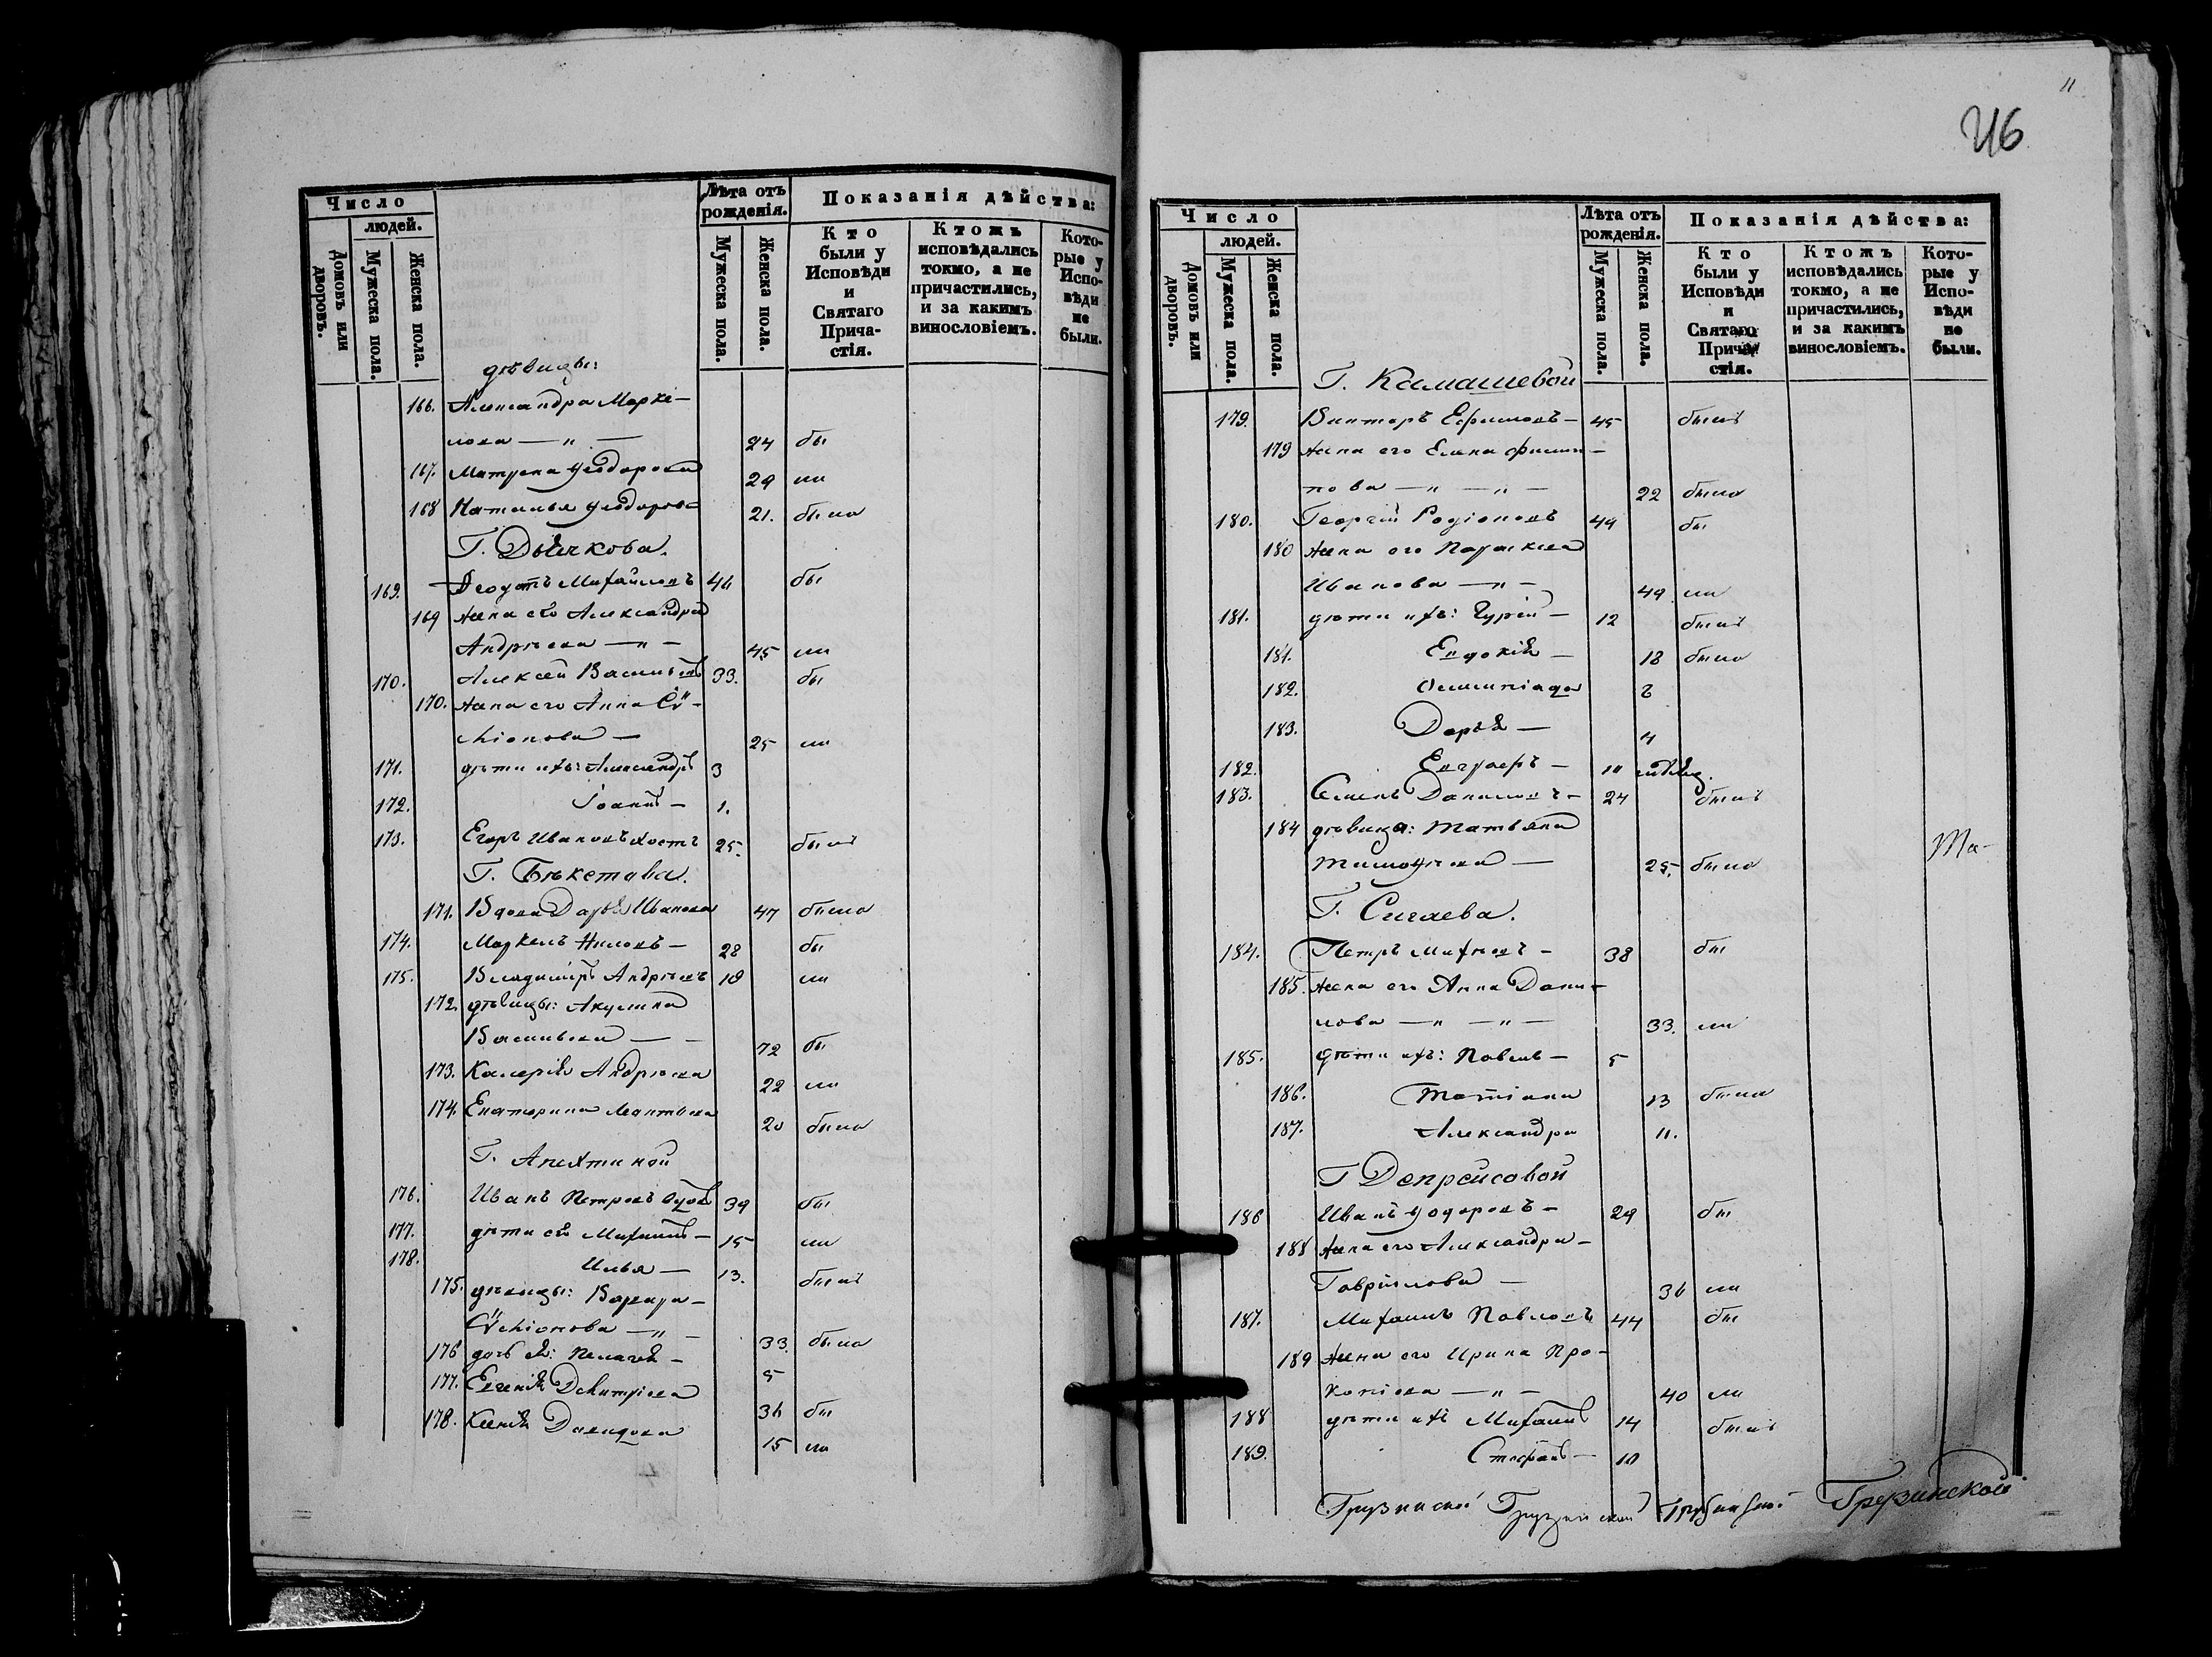 Число
людей.
Домовъ или дворовъ.
Мужеска пола.
Женска пола.
Лѣта отъ рожденія.
Мужеска пола.
Женска пола.
Показанія дѣйства:
Кто были у Исповѣди и Святаго Прича-стія.
Ктожъ исповѣдались токмо, а не причастились, и за какимъ винословіемъ.
Кото-рые у Испо-вѣди не были.
дѣвицы:
166. Александра Марке-
лова — " — 24 бы
167. Матрена Ѳеодорова 29 ли
168 Наталья Ѳеодоров 21. была
Г. Дьячкова.
169. Ѳеодотъ Михайловъ 46 бы
169 жена его Александра
Андрѣева — " — 45 ли
170. Алексѣй Васильевъ 33. бы
170. жена его Анна Сѵ-
міонова — 25 ли
171. дѣти ихъ: Александръ 3
172. Іоаннъ — 1.
173. Егоръ Ивановъ холостъ 25. былъ
Г. Бѣкетова.
171. Вдова Дарья Иванова 47 была
174. Маркелъ Ниловъ — 28 бы
175. Владиміръ Андрѣевъ 18 ли
172. дѣвицы: Акулина
Васильева — — 72 бы
173. Калерія Андрѣева 22 ли
174. Екатерина 20 была
Г. Апехтиной
176. Иванъ Петровъ вдовъ 39 бы
177. дѣти его Михаилъ — 15 ли
178. Илья — 13. былъ
175. дѣвицы: Варвара —
Сѵміонова — " — 33. была
176 дочь ея: Пелагея — 5
177. Евгенія Димтріева 36 бы
178. Ксенія Давидова 15 ли
11
246
Число
людей.
Домовъ или дворовъ.
Мужеска пола.
Женска пола.
Лѣта отъ рожденія.
Мужеска пола.
Женска пола.
Показанія дѣйства:
Кто были у Исповѣди и Святаго Прича-стія.
Ктожъ исповѣдались токмо, а не причастились, и за какимъ винословіемъ.
Кото-рые у Испо-вѣди не были.
Г. Камашевой
179. Викторъ Ефимовъ — 45 былъ
179 жена его Елена Филип-
пова — " — " — 22 была
180. Георгій Родіоновъ 49 бы
180 жена его Параскева
Иванова — " — 49 ли
181. дѣти ихъ: Гурій — 12 былъ
181. Евдокія — 18 была
182. Олимпіада 8
183. Дарья — 4
182. Евграфъ — 10
183. Семенъ Даниловъ — 24 былъ
184 дѣвица: Татьяна
Тимофѣева — 25. была
Та-
Г. Сигаева.
184. Петръ Михѣевъ — 38 бы
185. жена его Анна Дани-
лова — " — " — 33. ли
185. дѣти ихъ: Павелъ — 5
186. Татіана 13 была
187. Александра 11.
Г Депрейсовой
186 Иванъ Ѳодоровъ — 29 бы
188 жена его Александра —
Гаврилова — 36 ли
187. Михаилъ Павловъ 44 бы
189 жена его Ирина Про-
копіева — " — 40 ли
188 дѣти ихъ Михаилъ 14 былъ
189. Стефанъ — 10
Грузинской Грузинской Грузинской Грузинской